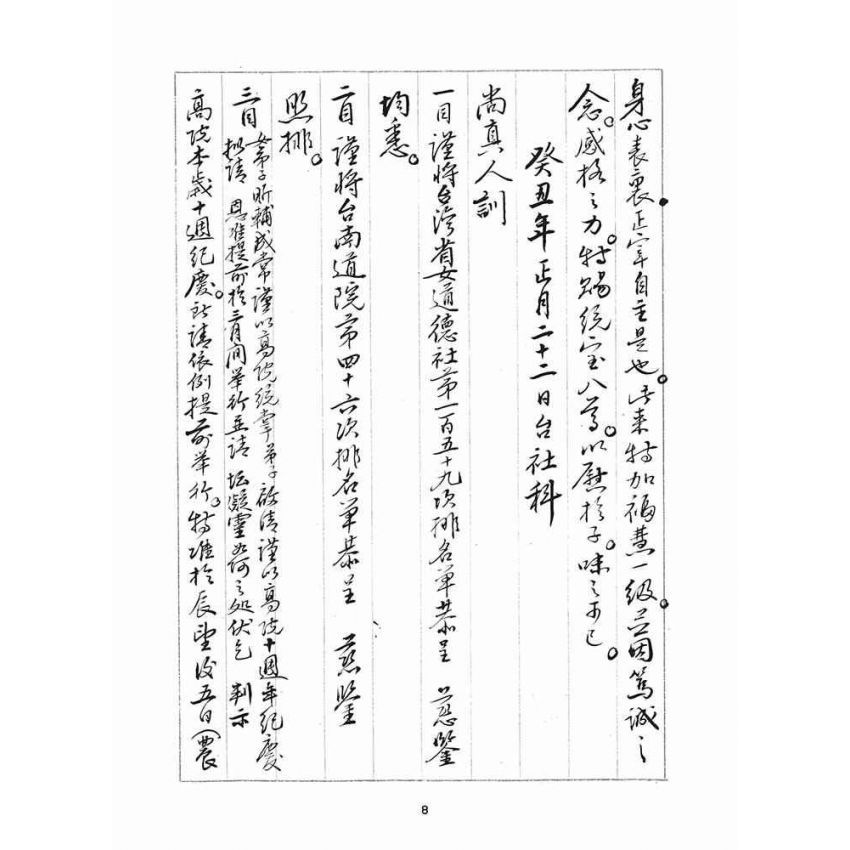 身心表裏。正宰自主是也。此來特加福慧一級。並因篤誠之
念。感格之力。特賜統室八尊。以慰於子。味之可已。
癸丑年正月二十二日台社科
尚真人訓
一目謹將台灣省女道德社第一百五十九次排名單恭呈 慈鑒
均悉。
二目謹將台南道院第四十六次排名單恭呈 慈鑒
照排。
三目 女弟子昕補成常謹以高院統掌弟子啟請謹以高院十週年紀慶
擬請 恩准提前於三月間舉行並請 坛凝靈如何之処伏乞 判示
高院本歲十週紀慶。所請依例提前舉行。特准於辰望後五日(農
8